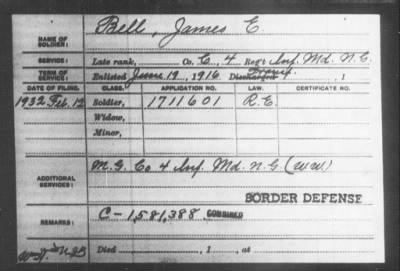 NAME OF SOLDIER: Bell, James E
SERVICE: Late rank, Co. C, 4 Reg't Inf. Md. N.G.
TERM OF SERVICE: Enlisted June 19, 1916 Discharged Transf. , 1
DATE OF FILING. CLASS. APPLICATION NO. LAW. CERTIFICATE NO.
1932 Feb. 12 Soldier, 1711601 R.E.
Widow,
Minor,
ADDITIONAL SERVICES: M.G. Co 4 Inf. Md. N.G (WW)
BORDER DEFENSE
REMARKS: C-1,581,388 COMBINED
Died , 1 , at